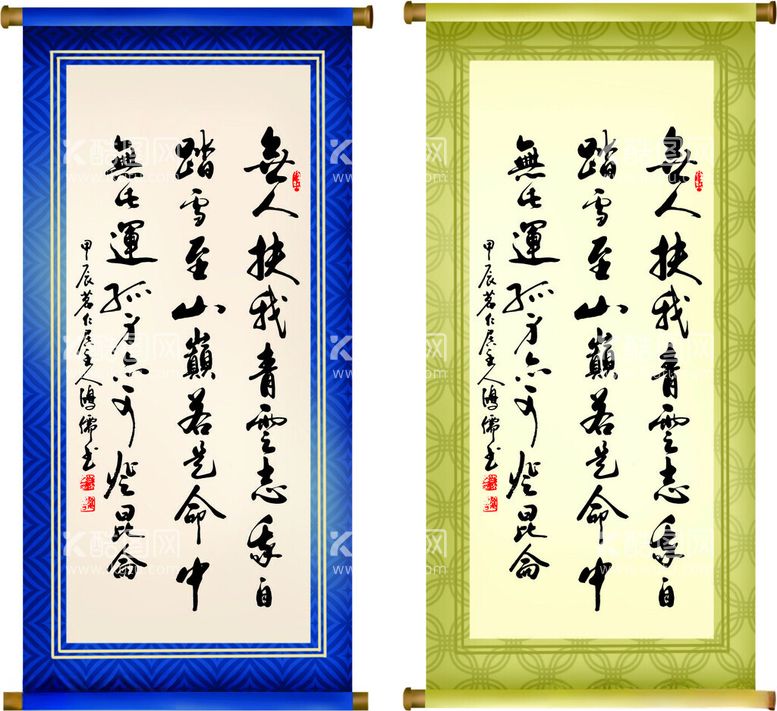 無人扶我青雲志我自
踏雪至山巔若是命中
無此運孤身亦可登昆侖
甲辰茗仁居主人鴻儒书
無人扶我青雲志我自
踏雪至山巔若是命中
無此運孤身亦可登昆侖
甲辰茗仁居主人鴻儒书